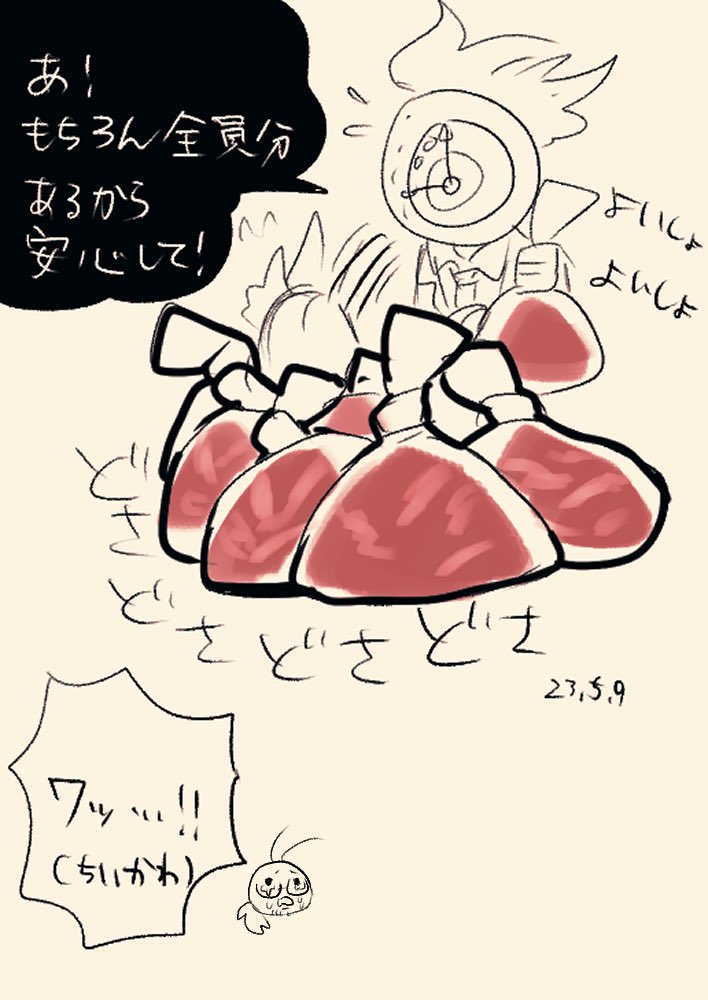 あ!
もちろん全員分
あるから
安心して!
よいしょ
よいしょ
どさ
どさ
どさ
どさ
23.5.9
ワッ…!!
(ちいかわ)